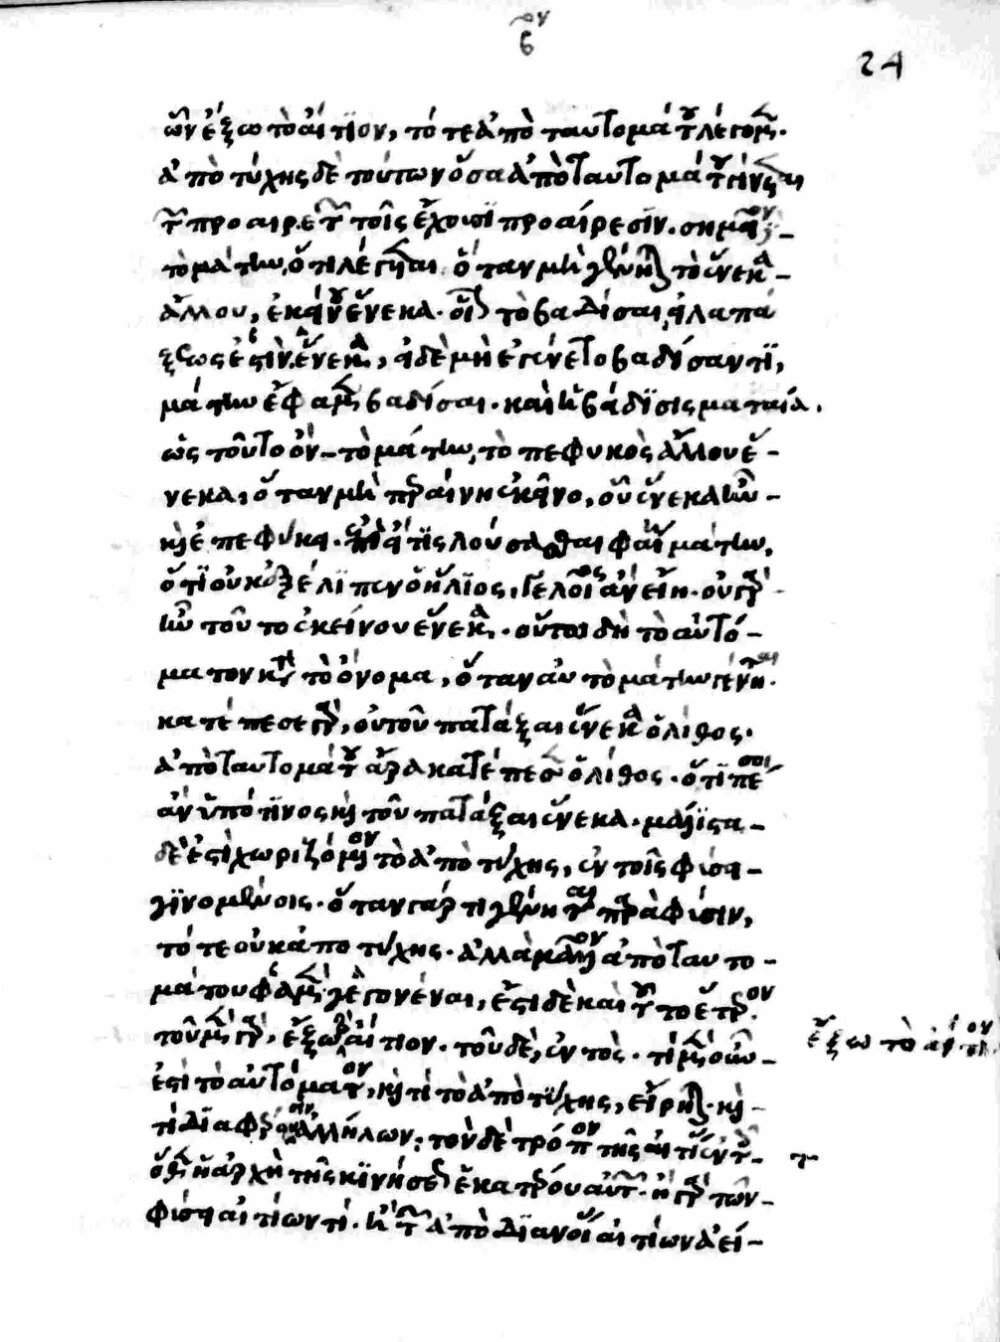 ϛον
24
ὧν ἔξω τὸ αἴτϊον, τό τε ἀπὸ ταυτομάτου λέγομεν.
ἀπὸ τύχης δὲ τούτων ὅσα ἀπὸ ταυτομάτου γίνεται
τῶν προαιρετῶν τοῖς ἔχουσϊ προαίρεσϊν. σημεῖον –
τὸ μάτην, ὅτι λέγεται ὅταν μὴ γένηται τὸ ἕνεκα –
ἄλλου, ἐκείνου ἕνεκα. οἷον τὸ βαδίσαι, εἰ λαπά
ξεως ἐστὶν ἕνεκα, εἰ δὲ μὴ ἐγένετο βαδίσαντϊ,
μάτην ἔφαμεν βαδίσαι. καὶ ἡ βάδϊσις ματαία.
ὡς τοῦτο ὂν – τὸ μάτην, τὸ πεφυκὸς ἄλλου ἕ –
νεκα, ὅταν μὴ περαίνη ἐκεῖνο, οὗ ἕνεκα ἦν –
καὶ ἐπεφύκει. ἐπεὶ εἴ τϊς λούσασθαι φαίη μάτην,
ὅτϊ οὐκ ἐξέλϊπεν ὁ ἥλϊος, γελοῖος ἂν εἴη. οὐ γὰρ –
ἦν τοῦτο ἐκείνου ἕνεκα. οὕτω δὴ τὸ αὐτό –
ματον κατὰ τὸ ὄνομα, ὅταν αὐτὸ μάτην γένηται.
κατέπεσε γὰρ, οὐ τοῦ πατάξαι ἕνεκα ὁ λίθος.
ἀπὸ ταυτομάτου ἄρα κατέπεσεν ὁ λίθος. ὅτϊ πέσοι
ἂν ὑπό τϊνος καὶ τοῦ πατάξαι ἕνεκα. μάλϊστα –
δὲ ἐστὶ χωριζόμενον τὸ ἀπὸ τύχης, ἐν τοῖς φύσει –
γϊνομένοις. ὅταν γάρ τι γένηται παρὰ φύσιν,
τότε οὐκ ἀπο τύχης. ἀλλὰ μᾶλλον ἀπὸ ταυτο –
μάτου φαμὲν γεγονέναι, ἔστι δὲ καὶ τοῦτο ἕτερον.
τοῦ μὲν γὰρ, ἔξω τὸ αἴτιον. τοῦ δὲ, ἐντός. τί μὲν οὖν –
ἔξω τὸ αἴτιον
ἐστὶ τὸ αὐτόματον, καὶ τί τὸ ἀπὸ τύχης, εἴρηται. καὶ –
τί δϊαφέρουσιν ἀλλήλων. τοῦ δὲ τρόπου τῆς αἰτίας, ἐν τοῖς –
ὅθεν ἡ ἀρχὴ τῆς κϊνήσεως ἑκατέρου αὐτῶν. ἢ γὰρ τῶν –
φύσει αἰτίων τί. ἢ τῶν ἀπὸ δϊανοίας αἰτίων ἀεί –